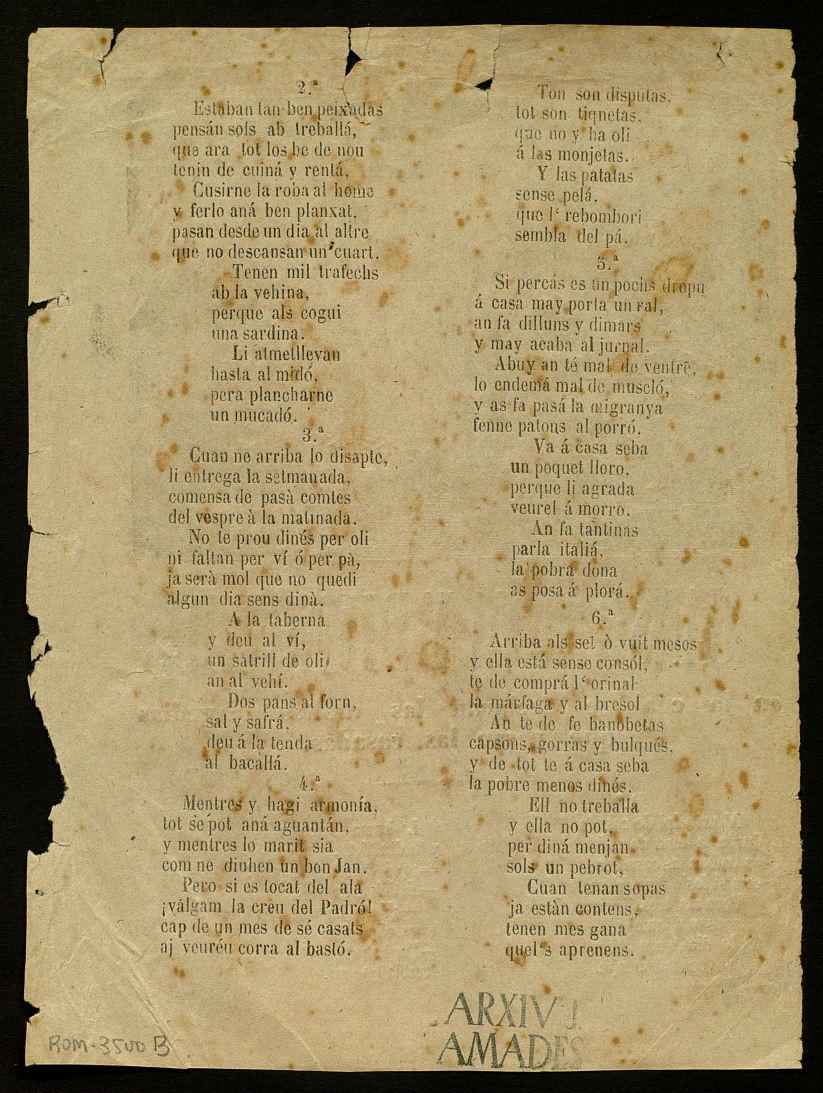 2.ª
Estaban tan ben peixadas
pensán sols ab treballá,
que ara tot los be de nou
tenin de cuiná y rentá,
Cusirne la roba al home
y ferlo aná ben planxat,
pasan desde un dia al altre
que no descansan un cuart.
Tenen mil trafechs
ab la vehina,
perque als cogui
una sardina.
Li atmetllevan
hasta al midó,
pera plancharne
un mucadó.
3.ª
Cuan ne arriba lo disapte,
li entrega la setmanada,
comensa de pasà comtes
del vespre à la matinada.
No te prou dinés per oli
ni faltan per ví ó per pà,
ja serà mol que no quedi
algun dia sens dinà.
A la taberna
y deu al ví,
un satrill de oli
an al vehí.
Dos pans al forn,
sal y safrá,
deu á la tenda
al bacallá.
4.ª
Mentres y hagi armonía,
tot se pot aná aguantán,
y mentres lo marit sia
com ne diuhen un bon Jan.
Pero si es tocat del ala
¡válgam la creu del Padró!
cap de un mes de sé casats
aj veuréu corra al bastó.
Ton son disputas,
tot son tiqnetas,
que no y ha oli
á las monjetas.
Y las patatas
sense pelá,
que l' rebombori
sembla del pá.
5.ª
Si percás es un pochs dropu
á casa may porta un ral,
an fa dilluns y dimars
y may acaba al jurnal.
Abuy an té mal de ventre,
lo endemá mal de muscló,
y as fa pasá la migranya
fenne patons al porró.
Va á casa seba
un poquet lloro,
perque li agrada
veurel á morro.
An fa tantinas
parla italiá,
la pobra dona
as posa á plorá.
6.ª
Arriba als set ò vuit mesos
y ella está sense consól,
te de comprá l' orinal
la márfaga y al bresol
An te de fe banobetas
capsons, gorras y bulqués,
y de tot te á casa seba
la pobre menos dinés.
Ell no treballa
y ella no pot,
per diná menjan
sols un pebrot,
Cuan tenan sopas
ja estàn contens,
tenen mes gana
quel's aprenens.
ARXIV J.
AMADES
ROM-3500 B